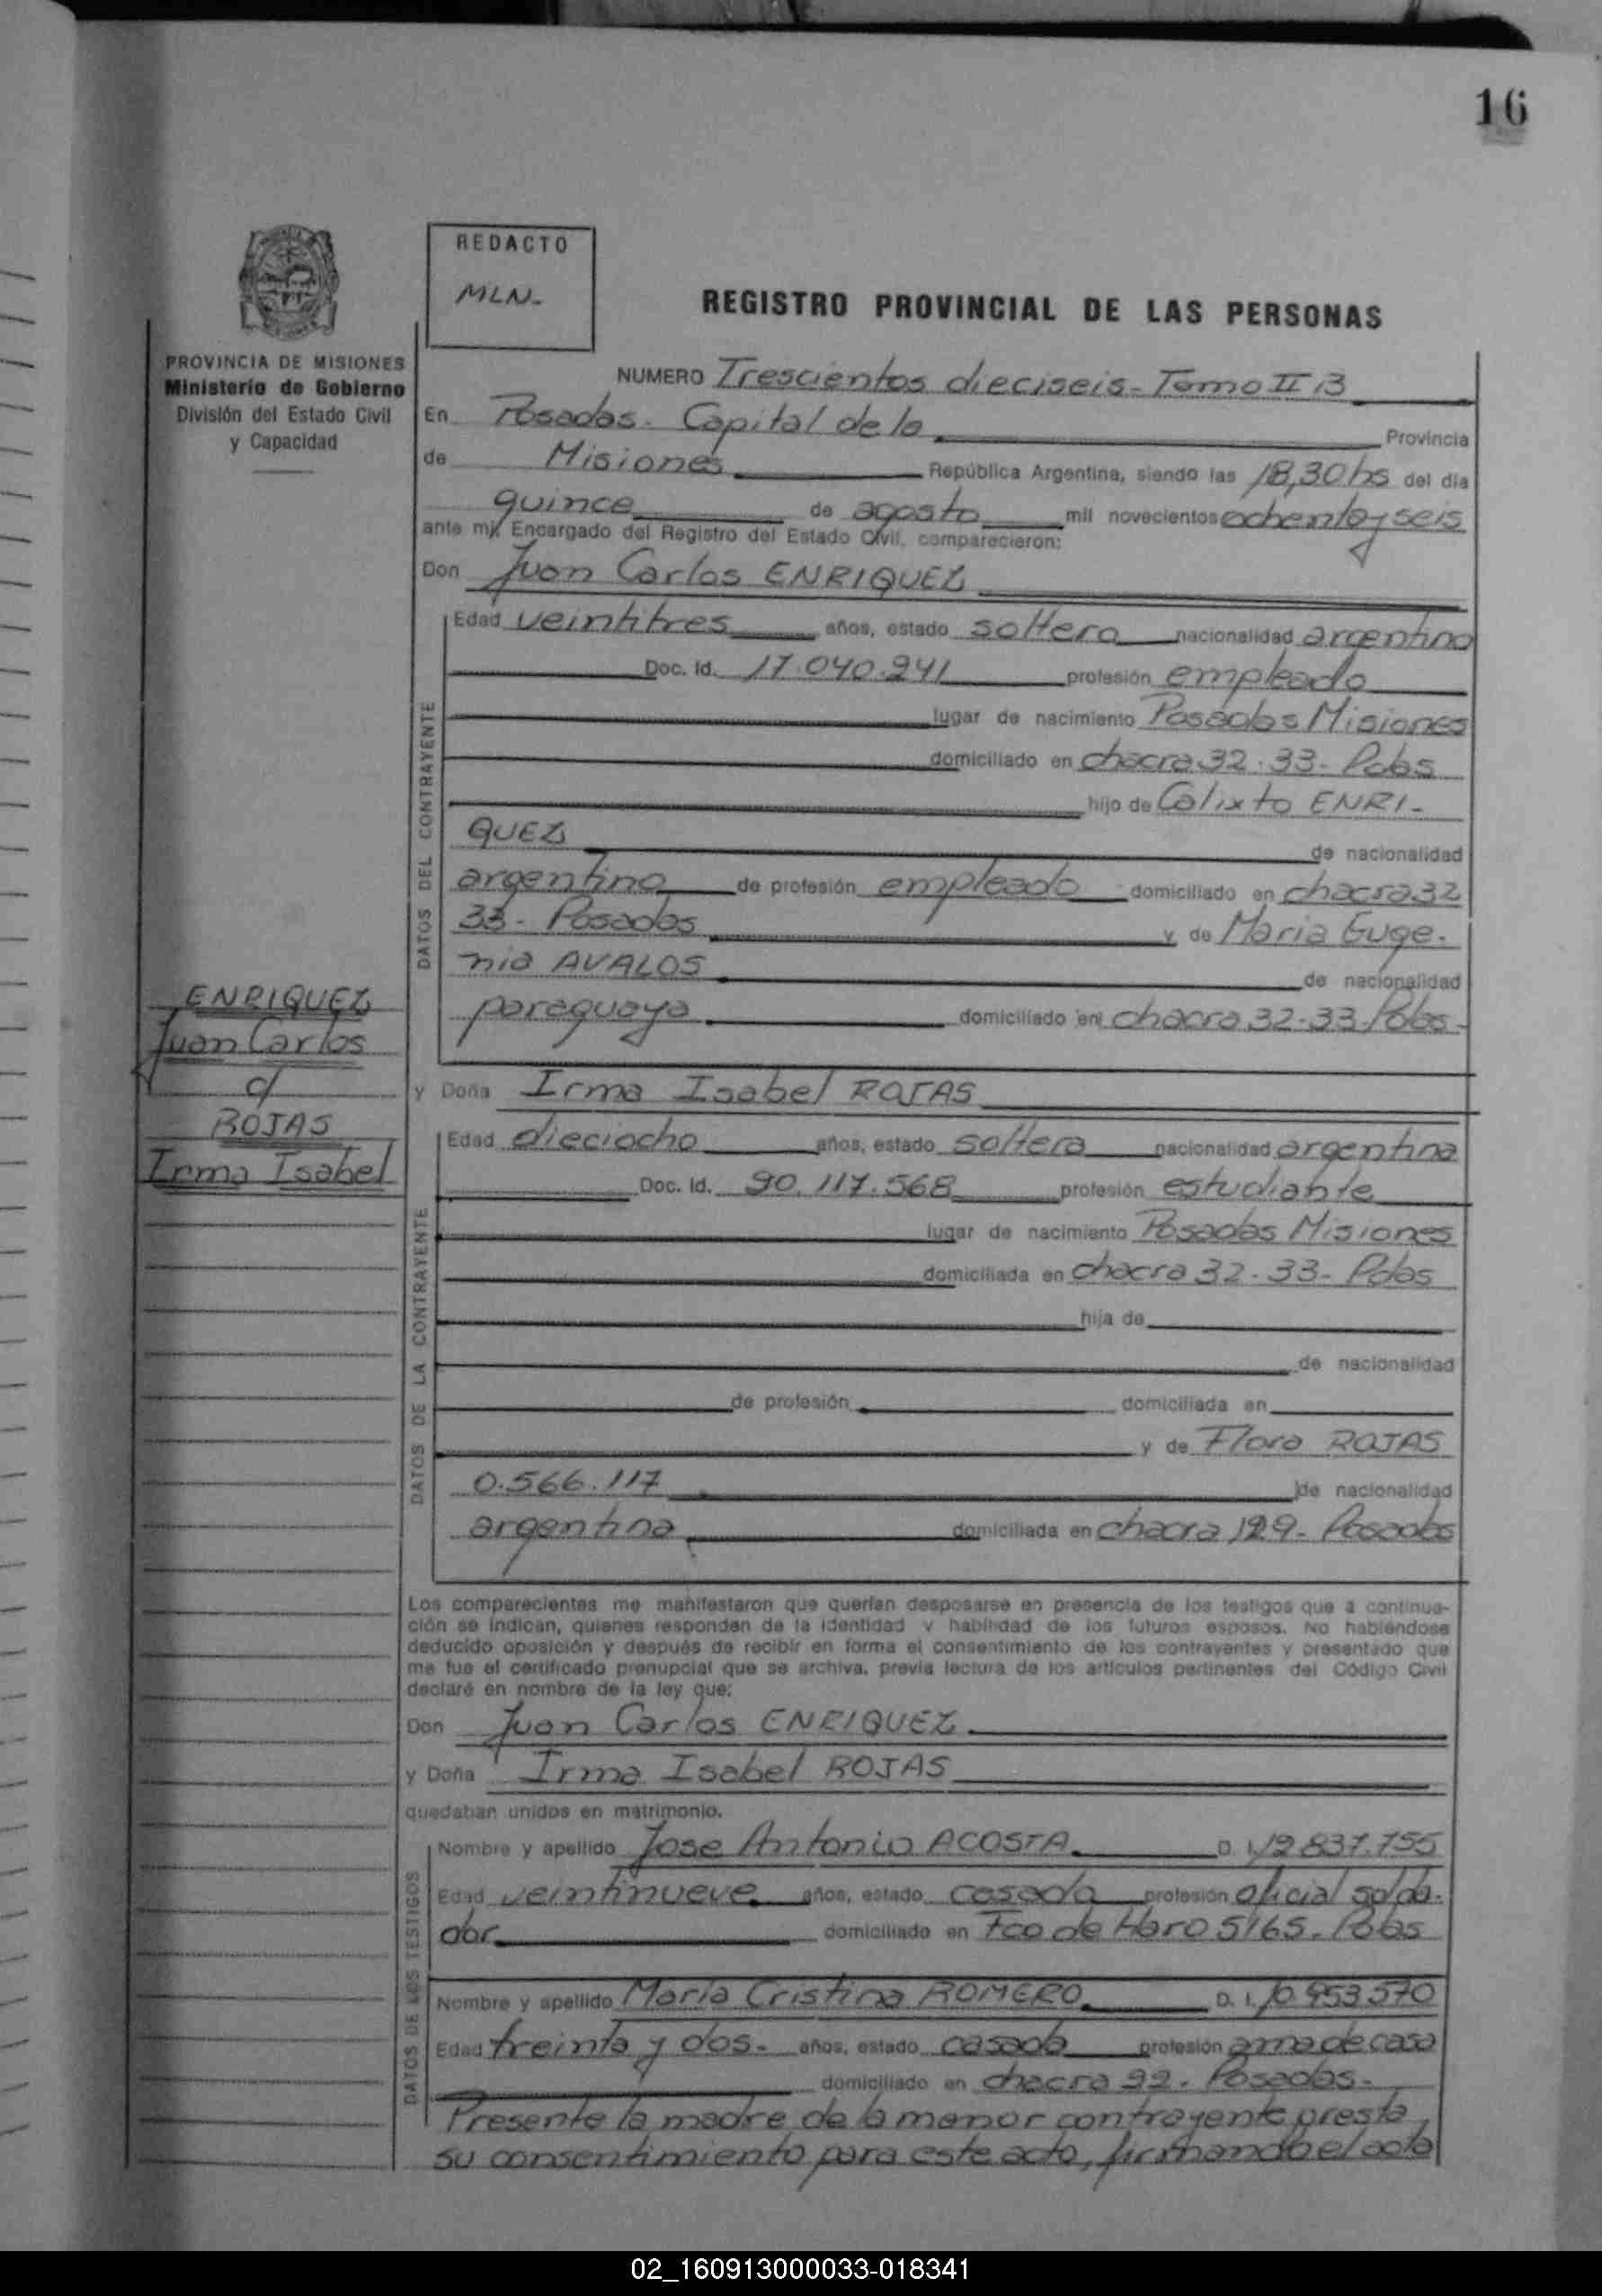 16
REDACTO
MLN-
REGISTRO PROVINCIAL DE LAS PERSONAS
PROVINCIA DE MISIONES
Ministerio de Gobierno
División del Estado Civil
y Capacidad
NUMERO Trescientos dieciseis - Tomo II B
En Posadas - Capital de la Provincia
de Misiones República Argentina, siendo las 18,30 hs del día
quince de agosto mil novecientos ochenta y seis
ante mí, Encargado del Registro del Estado Civil, comparecieron:
Don Juan Carlos ENRIQUEZ
DATOS DEL CONTRAYENTE
Edad veintitres años, estado soltero nacionalidad argentino
Doc. Id. 17.040.241 profesión empleado
lugar de nacimiento Posadas Misiones
domiciliado en chacra 32-33- Pdas
hijo de Calixto ENRI-
QUEZ de nacionalidad
argentino de profesión empleado domiciliado en chacra 32
33- Posadas y de Maria Euge-
nia AVALOS de nacionalidad
paraguaya domiciliado en chacra 32-33-Pdas-
ENRIQUEZ
Juan Carlos
c/
ROJAS
Irma Isabel
y Doña Irma Isabel ROJAS
DATOS DE LA CONTRAYENTE
Edad dieciocho años, estado soltera nacionalidad argentina
Doc. Id. 90.117.568 profesión estudiante
lugar de nacimiento Posadas Misiones
domiciliada en chacra 32-33- Pdas
hija de
de nacionalidad
de profesión domiciliada en
y de Flora ROJAS
0.566.117 de nacionalidad
argentina domiciliada en chacra 129- Posadas
Los comparecientes me manifestaron que querían desposarse en presencia de los testigos que a continua-
ción se indican, quienes responden de la identidad y habilidad de los futuros esposos. No habiéndose
deducido oposición y después de recibir en forma el consentimiento de los contrayentes y presentado que
me fue el certificado prenupcial que se archiva, previa lectura de los artículos pertinentes del Código Civil
declaré en nombre de la ley que:
Don Juan Carlos ENRIQUEZ
y Doña Irma Isabel ROJAS
quedaban unidos en matrimonio.
DATOS DE LOS TESTIGOS
Nombre y apellido Jose Antonio ACOSTA D. I. 12.837.755
Edad veintinueve años, estado casado profesión oficial solda-
dor domiciliado en Fco de Haro 5165- Pdas
Nombre y apellido Maria Cristina ROMERO D. I. 10.953.570
Edad treinta y dos- años, estado casada profesión ama de casa
domiciliado en chacra 92- Posadas-
Presente la madre de la menor contrayente presta
su consentimiento para este acto, firmando el acta
02_160913000033-018341